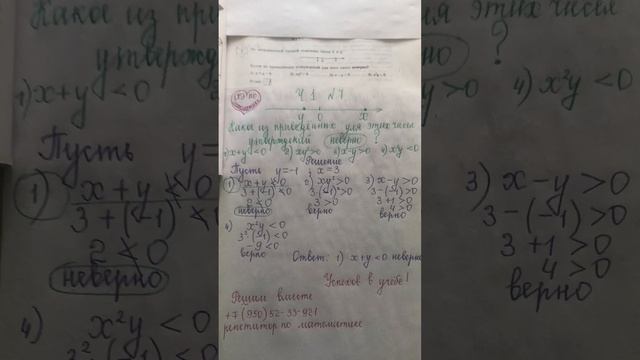 Ч 1 №7
у 0 х
Какое из приведённых для этих чисел
утверждений неверно?
1) x+y<0 2) xy²>0 3) x-y>0 4) x²y<0
Решение
Пусть y=-1 ; x=3
1) x+y<0 2) xy²>0 3) x-y>0
3+(-1)<0 3·(-1)²>0 3-(-1)>0
2<0 3>0 3+1>0
неверно верно 4>0
верно
4) x²y<0
3²·(-1)<0
-9<0
верно
Ответ: 1) x+y<0 неверно
Успехов в учёбе!
Решаем вместе
+7(950)52-33-921
репетитор по математике
Какое из
утвержд
1) x+y<0
Пусть y=
1) x+y<0
3+(-1)<0
2<0
неверно
4) x²y<0
этих чисел
?
y>0 4) x²y<0
3) x-y>0
3-(-1)>0
3+1>0
4>0
верно